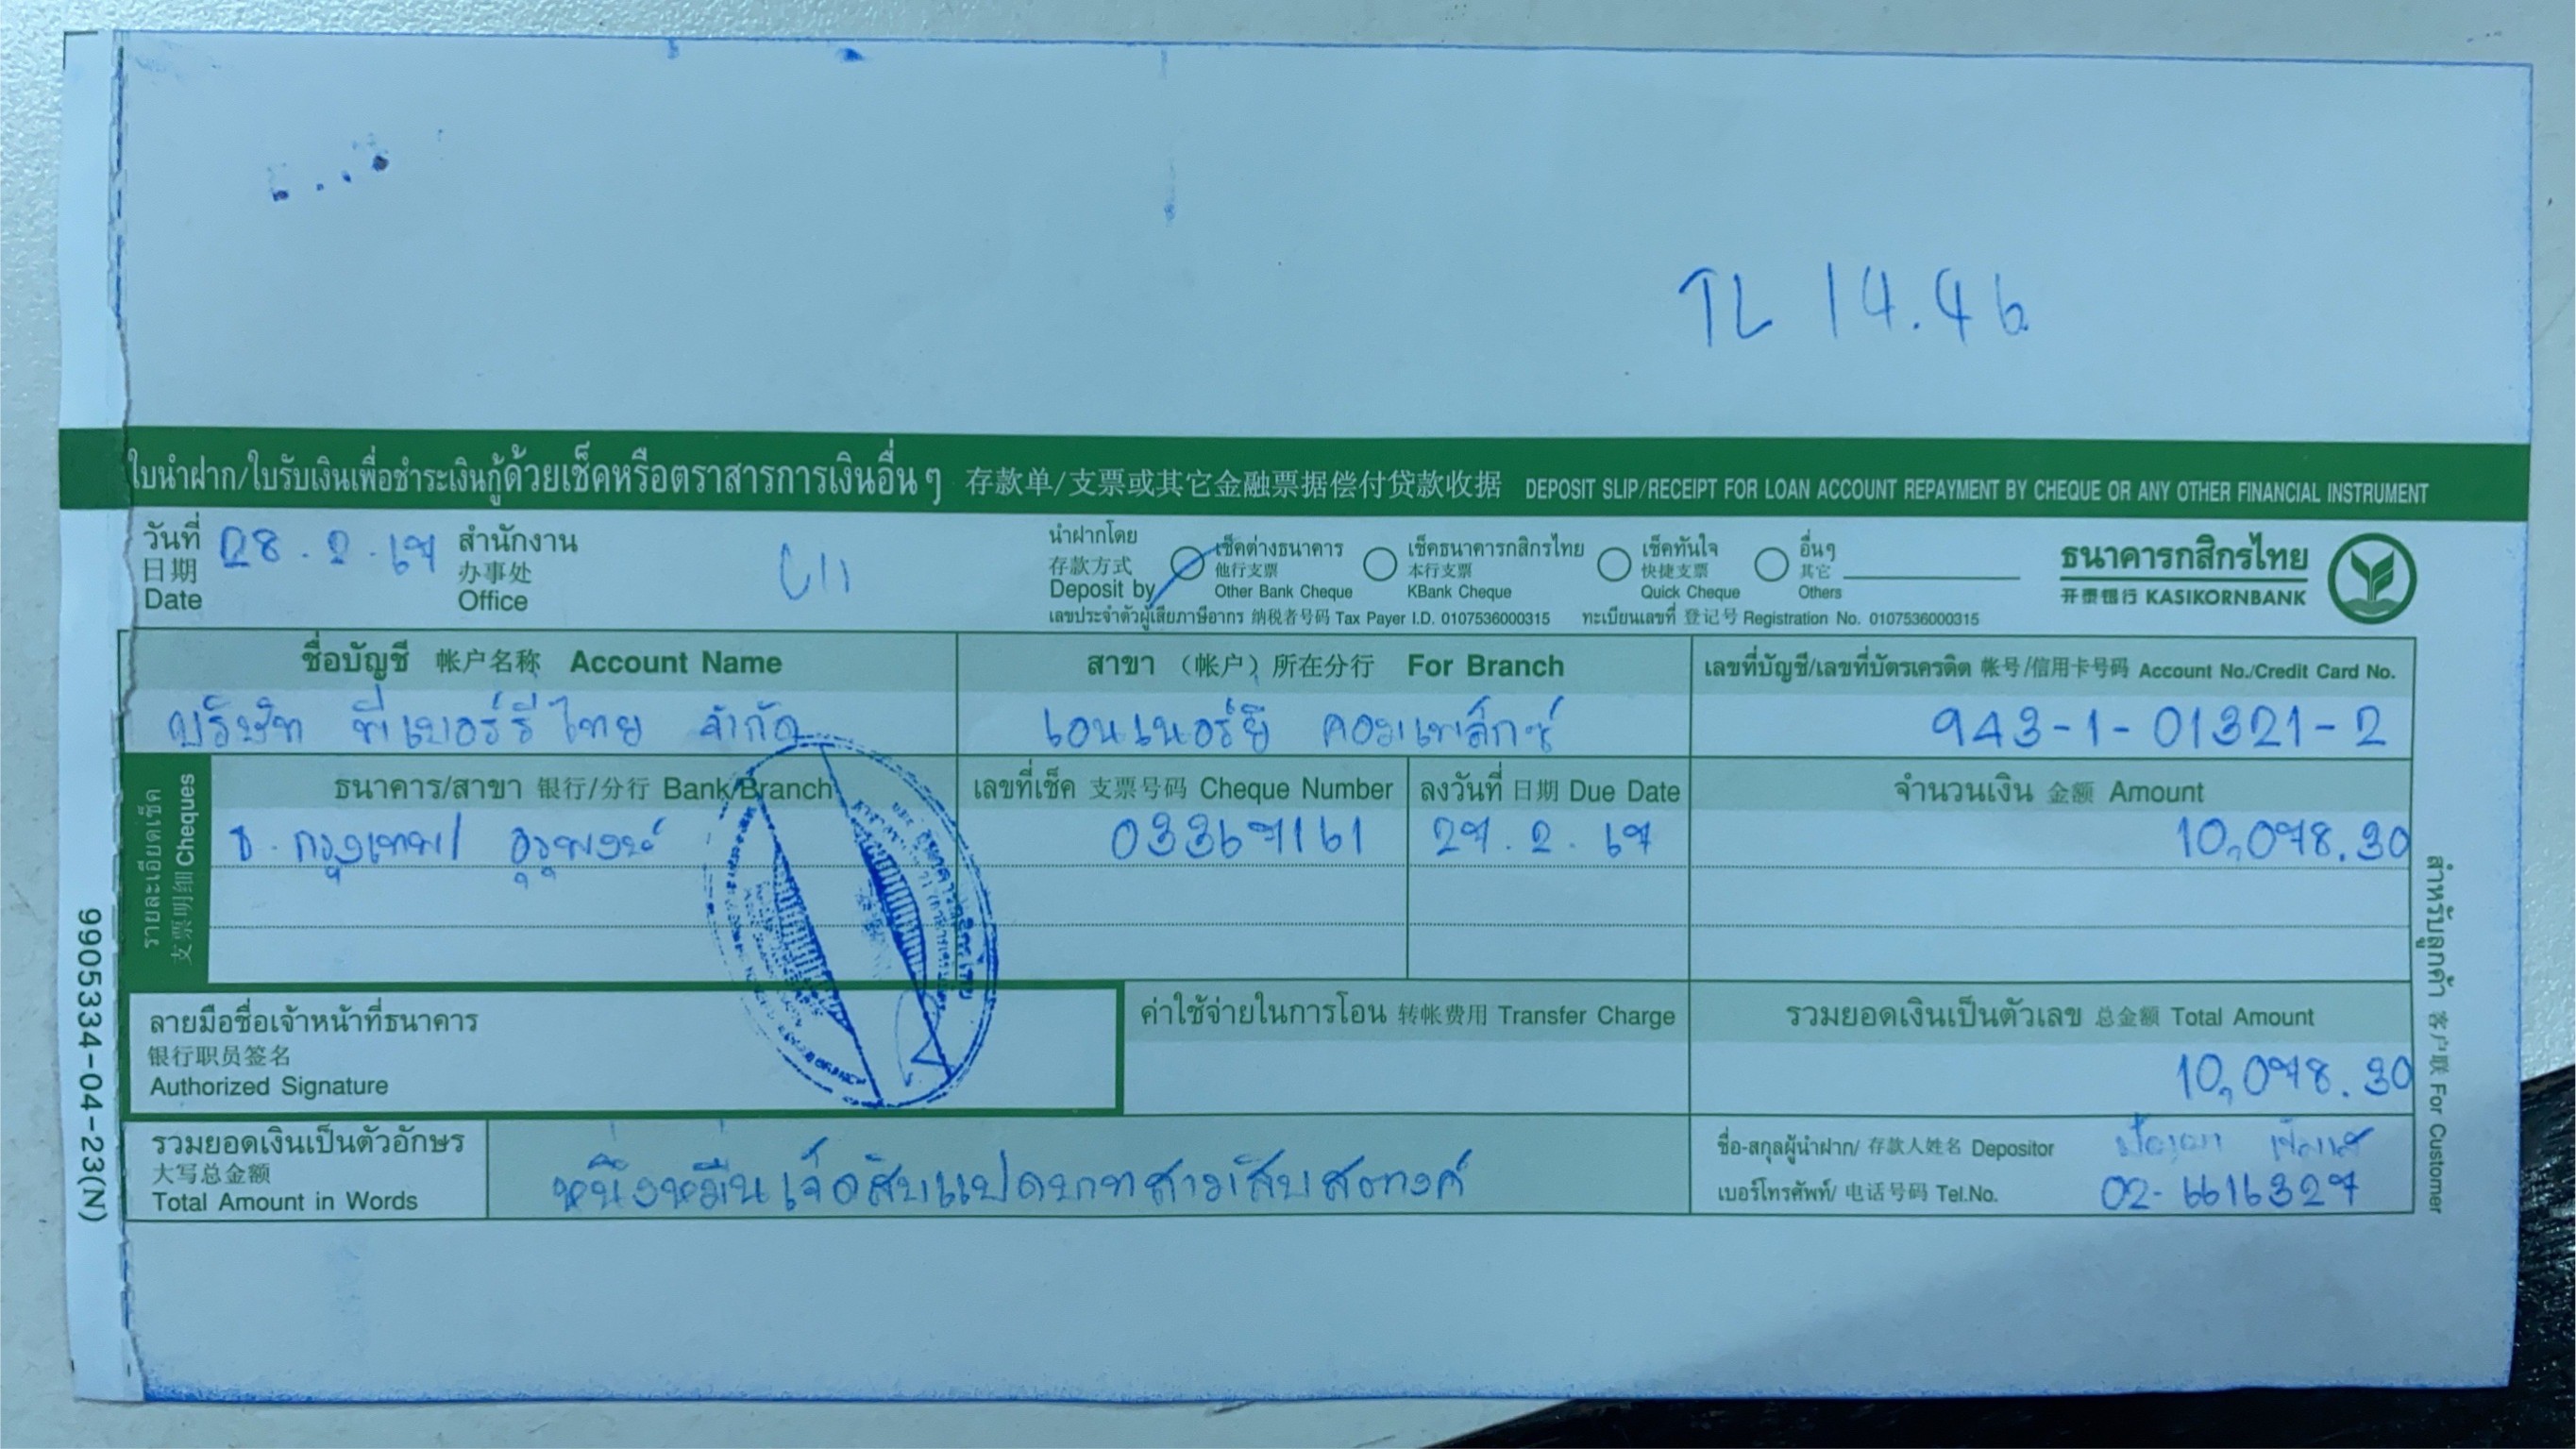 TL 14.46
ใบนำฝาก/ใบรับเงินเพื่อชำระเงินกู้ด้วยเช็คหรือตราสารการเงินอื่น ๆ 存款单/支票或其它金融票据偿付贷款收据 DEPOSIT SLIP/RECEIPT FOR LOAN ACCOUNT REPAYMENT BY CHEQUE OR ANY OTHER FINANCIAL INSTRUMENT
วันที่ 28.2.67 สำนักงาน
日期 办事处
Date Office
นำฝากโดย เช็คต่างธนาคาร เช็คธนาคารกสิกรไทย เช็คทันใจ อื่นๆ
存款方式 他行支票 本行支票 快捷支票 其它
Deposit by Other Bank Cheque KBank Cheque Quick Cheque Others
เลขประจำตัวผู้เสียภาษีอากร 纳税者号码 Tax Payer I.D. 0107536000315 ทะเบียนเลขที่ 登记号 Registration No. 0107536000315
ธนาคารกสิกรไทย
开泰银行 KASIKORNBANK
ชื่อบัญชี 帐户名称 Account Name สาขา (帐户) 所在分行 For Branch เลขที่บัญชี/เลขที่บัตรเครดิต 帐号/信用卡号码 Account No./Credit Card No.
บริษัท ทีเบอร์รี่ไทย จำกัด เอนเนอร์ยี่ คอมเพล็กซ์ 943-1-01321-2
รายละเอียดเช็ค
支票明细 Cheques
ธนาคาร/สาขา 银行/分行 Bank/Branch เลขที่เช็ค 支票号码 Cheque Number ลงวันที่ 日期 Due Date จำนวนเงิน 金额 Amount
ธ. กรุงเทพ/ อุรุพงษ์ 03367161 27.2.67 10,078.30
ลายมือชื่อเจ้าหน้าที่ธนาคาร
银行职员签名
Authorized Signature
ค่าใช้จ่ายในการโอน 转帐费用 Transfer Charge รวมยอดเงินเป็นตัวเลข 总金额 Total Amount
10,078.30
รวมยอดเงินเป็นตัวอักษร
大写总金额
Total Amount in Words
หนึ่งหมื่นเจ็ดสิบแปดบาทสามสิบสตางค์
ชื่อ-สกุลผู้นำฝาก/ 存款人姓名 Depositor
เบอร์โทรศัพท์/ 电话号码 Tel.No. 02-6616327
สำหรับลูกค้า 客户联 For Customer
9905334-04-23(N)